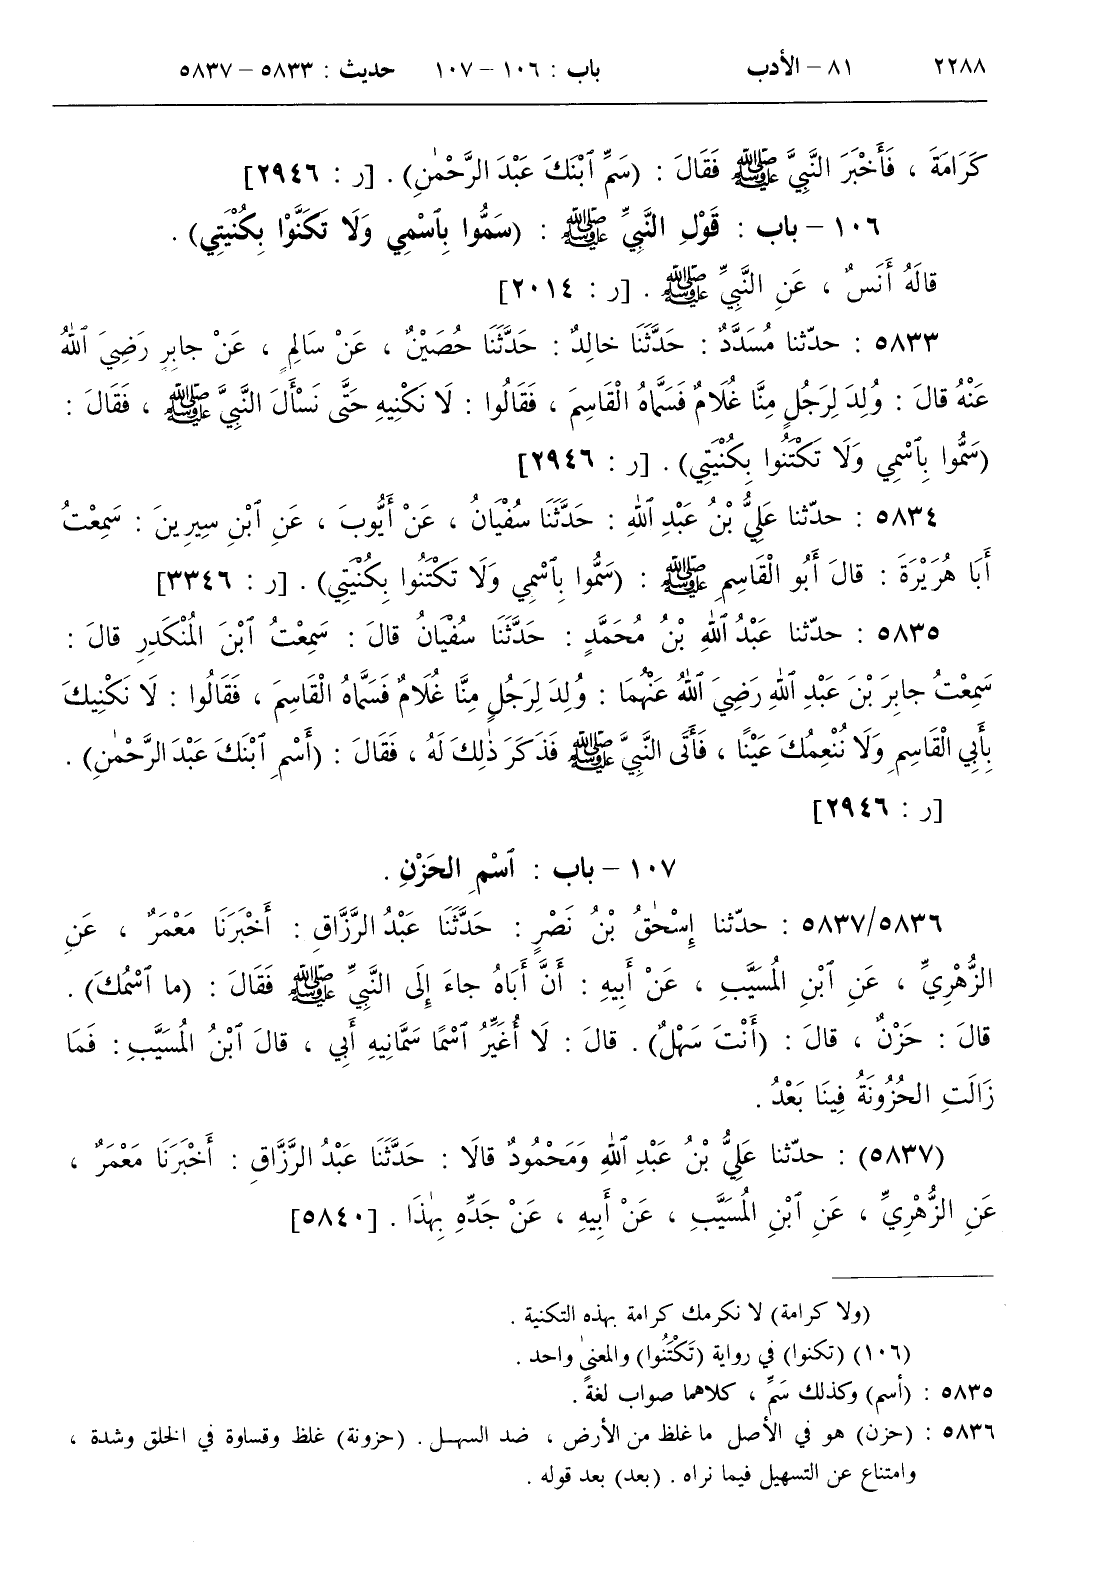 ٢٢٨٨ ٨١ – الأدب باب : ١٠٦ – ١٠٧ حديث : ٥٨٣٣ – ٥٨٣٧
كَرَامَةَ ، فَأَخْبَرَ النَّبِيَّ ﷺ فَقَالَ : (سَمِّ ٱبْنَكَ عَبْدَ الرَّحْمٰنِ) . [ر : ٢٩٤٦]
١٠٦ – باب : قَوْلِ النَّبِيِّ ﷺ : (سَمُّوا بِٱسْمِي وَلَا تَكَنَّوْا بِكُنْيَتِي) .
قالَهُ أَنَسٌ ، عَنِ النَّبِيِّ ﷺ . [ر : ٢٠١٤]
٥٨٣٣ : حدّثنا مُسَدَّدٌ : حَدَّثَنَا خالِدٌ : حَدَّثَنَا حُصَيْنٌ ، عَنْ سَالِمٍ ، عَنْ جابِرٍ رَضِيَ ٱللهُ
عَنْهُ قالَ : وُلِدَ لِرَجُلٍ مِنَّا غُلَامٌ فَسَمَّاهُ الْقَاسِمَ ، فَقَالُوا : لَا نَكْنِيهِ حَتَّى نَسْأَلَ النَّبِيَّ ﷺ ، فَقَالَ :
(سَمُّوا بِٱسْمِي وَلَا تَكْتَنُوا بِكُنْيَتِي) . [ر : ٢٩٤٦]
٥٨٣٤ : حدّثنا عَلِيُّ بْنُ عَبْدِ ٱللهِ : حَدَّثَنَا سُفْيَانُ ، عَنْ أَيُّوبَ ، عَنِ ٱبْنِ سِيرِينَ : سَمِعْتُ
أَبَا هُرَيْرَةَ : قالَ أَبُو الْقَاسِمِ ﷺ : (سَمُّوا بِٱسْمِي وَلَا تَكْتَنُوا بِكُنْيَتِي) . [ر : ٣٣٤٦]
٥٨٣٥ : حدّثنا عَبْدُ ٱللهِ بْنُ مُحَمَّدٍ : حَدَّثَنَا سُفْيَانُ قالَ : سَمِعْتُ ٱبْنَ المُنْكَدِرِ قالَ :
سَمِعْتُ جابِرَ بْنَ عَبْدِ ٱللهِ رَضِيَ ٱللهُ عَنْهُمَا : وُلِدَ لِرَجُلٍ مِنَّا غُلَامٌ فَسَمَّاهُ الْقَاسِمَ ، فَقَالُوا : لَا نَكْنِيكَ
بِأَبِي الْقَاسِمِ وَلَا نُنْعِمُكَ عَيْنًا ، فَأَتَى النَّبِيَّ ﷺ فَذَكَرَ ذٰلِكَ لَهُ ، فَقَالَ : (أَسْمِ ٱبْنَكَ عَبْدَ الرَّحْمٰنِ) .
[ر : ٢٩٤٦]
١٠٧ – باب : ٱسْمِ الحَزْنِ .
٥٨٣٧/٥٨٣٦ : حدّثنا إِسْحٰقُ بْنُ نَصْرٍ : حَدَّثَنَا عَبْدُ الرَّزَّاقِ : أَخْبَرَنَا مَعْمَرٌ ، عَنِ
الزُّهْرِيِّ ، عَنِ ٱبْنِ المُسَيَّبِ ، عَنْ أَبِيهِ : أَنَّ أَبَاهُ جاءَ إِلَى النَّبِيِّ ﷺ فَقَالَ : (ما ٱسْمُكَ) .
قالَ : حَزْنٌ ، قالَ : (أَنْتَ سَهْلٌ) . قالَ : لَا أُغَيِّرُ ٱسْمًا سَمَّانِيهِ أَبِي ، قالَ ٱبْنُ المُسَيَّبِ : فَمَا
زَالَتِ الحُزُونَةُ فِينَا بَعْدُ .
(٥٨٣٧) : حدّثنا عَلِيُّ بْنُ عَبْدِ ٱللهِ وَمَحْمُودٌ قالَا : حَدَّثَنَا عَبْدُ الرَّزَّاقِ : أَخْبَرَنَا مَعْمَرٌ ،
عَنِ الزُّهْرِيِّ ، عَنِ ٱبْنِ المُسَيَّبِ ، عَنْ أَبِيهِ ، عَنْ جَدِّهِ بِهٰذَا . [٥٨٤٠]
(ولا كرامة) لا نكرمك كرامة بهذه التكنية .
(١٠٦) (تكنوا) في رواية (تَكْتَنُوا) والمعنى واحد .
٥٨٣٥ : (أسم) وكذلك سَمِّ ، كلاهما صواب لغة .
٥٨٣٦ : (حزن) هو في الأصل ما غلظ من الأرض ، ضد السهل . (حزونة) غلظ وقساوة في الخلق وشدة ،
وامتناع عن التسهيل فيما نراه . (بعد) بعد قوله .